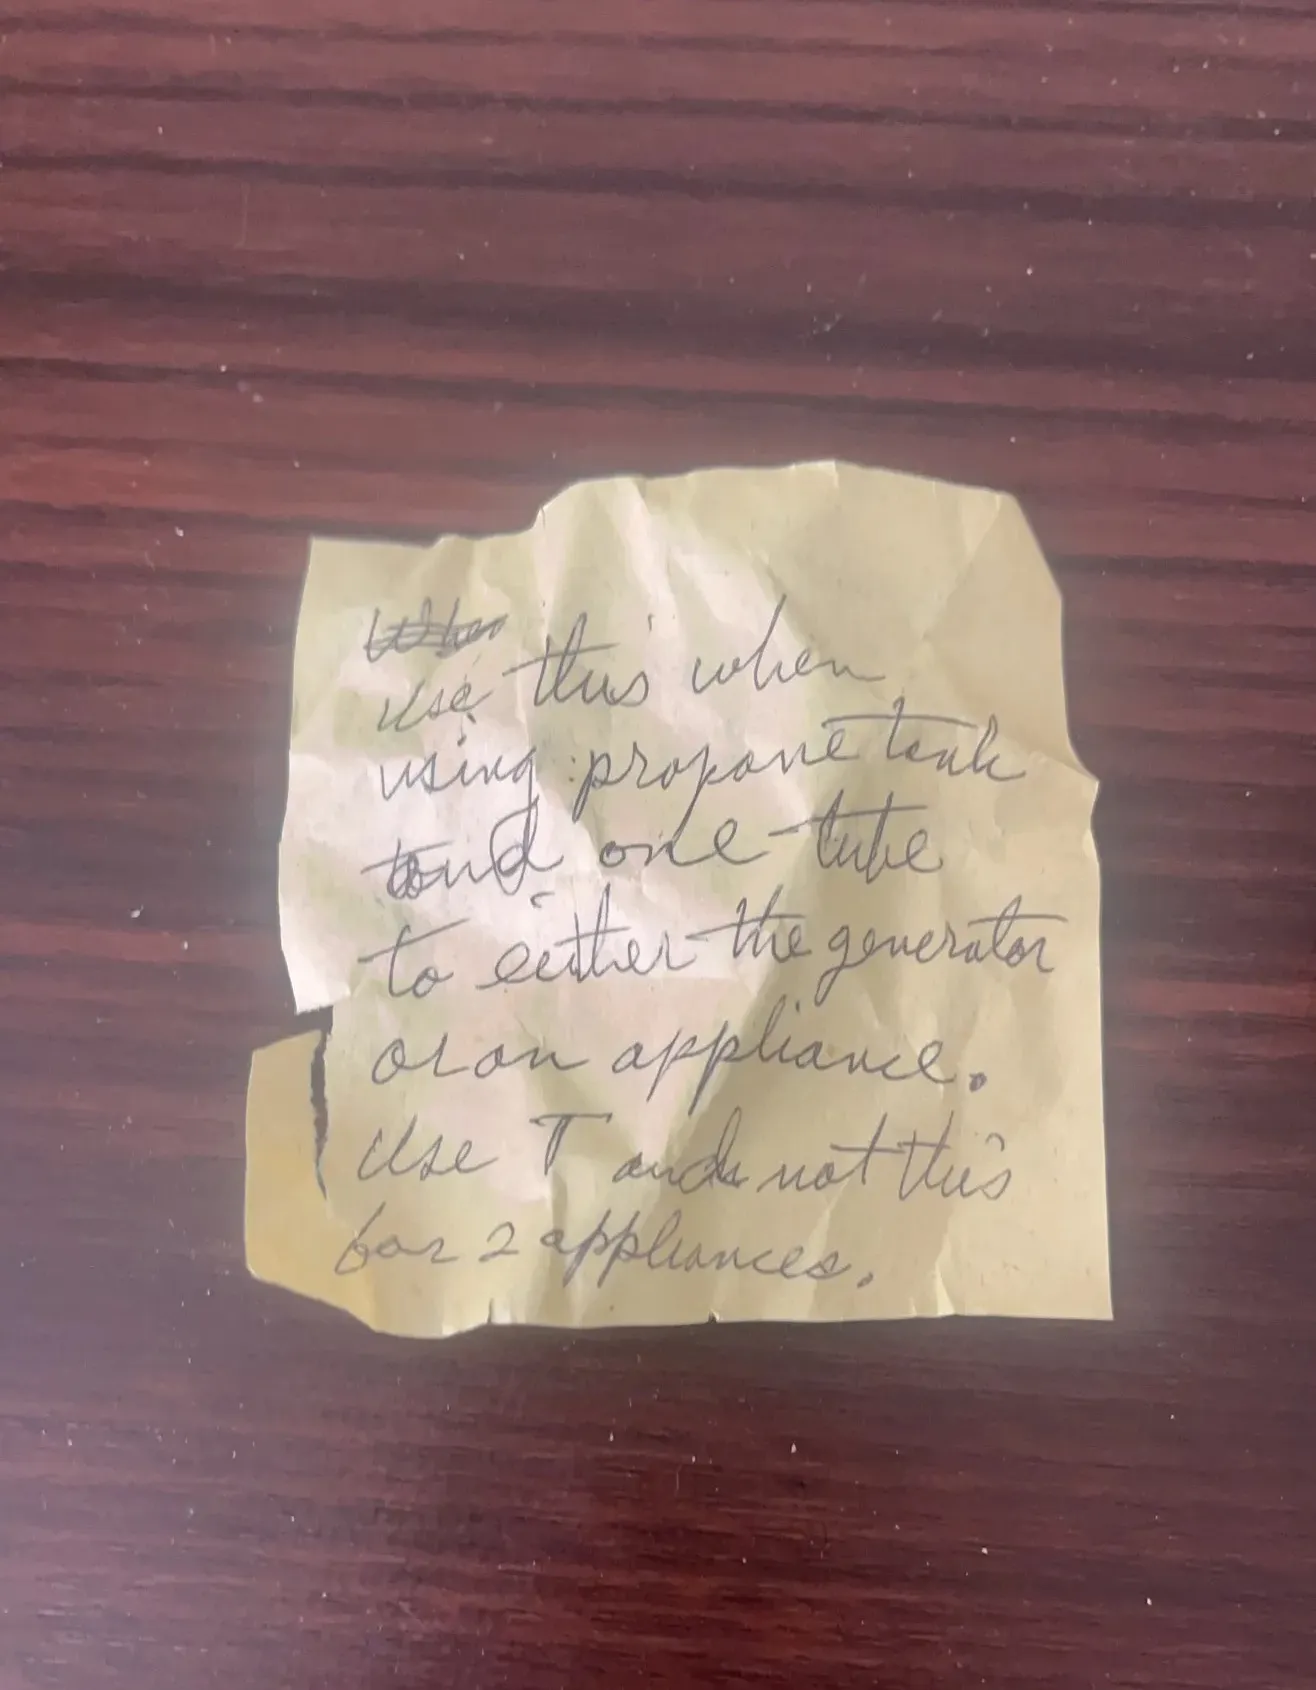 When
Use this when
using propane tank
and one tube
to either the generator
or an appliance.
Use T and not this
for 2 appliances.